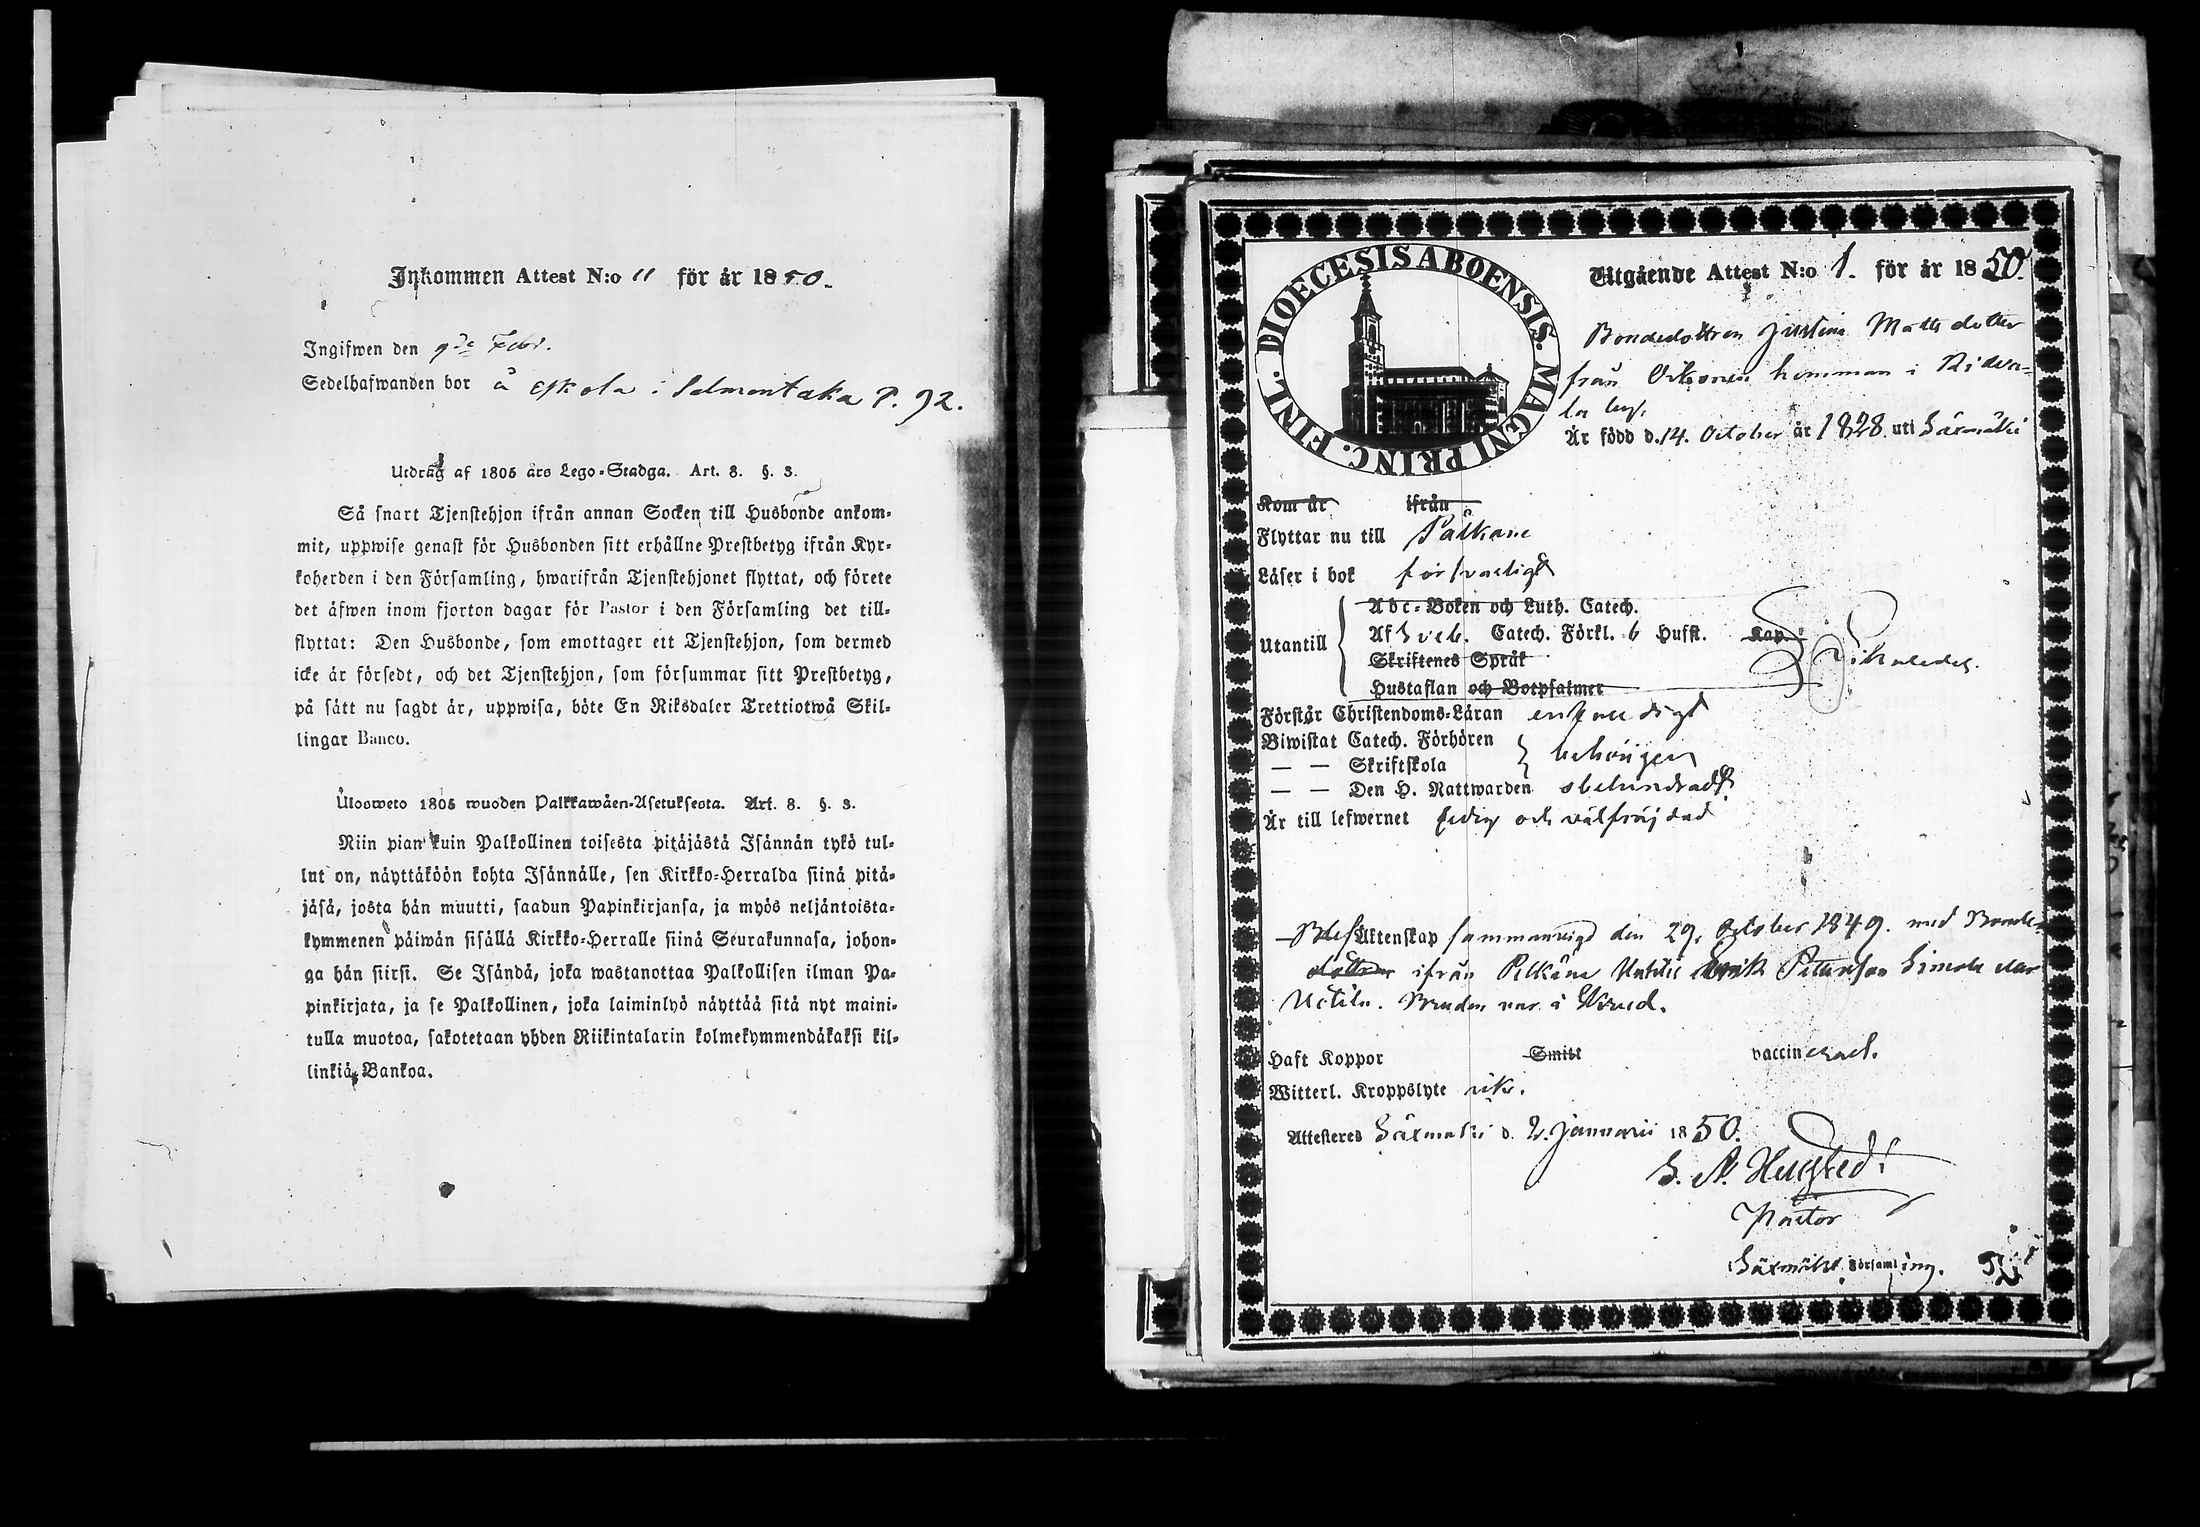 Inkommen Attest N:o 11 för år 1850.
Ingifwen den 9de Febr.
Sedelhafwanden bor å Eskola i Salmentaka P. 92.
Utdrag af 1805 års Lego-Stadga. Art. 8. §. 3.
Så snart Tjenstehjon ifrån annan Socken till Husbonde ankom-
mit, uppwise genast för Husbonden sitt erhållne Prestbetyg ifrån Kyr-
koherden i den Församling, hwarifrån Tjenstehjonet flyttat, och förete
det äfwen inom fjorton dagar för Pastor i den Församling det till-
flyttat: Den Husbonde, som emottager ett Tjenstehjon, som dermed
icke är försedt, och det Tjenstehjon, som försummar sitt Prestbetyg,
på sätt nu sagdt är, uppwisa, böte En Riksdaler Trettiotwå Skil-
lingar Banco.
Ulosweto 1805 wuoden Palkkawäen-Asetuksesta. Art. 8. §. 3.
Niin pian kuin Palkollinen toisesta pitäjästä Isännän tykö tul-
lut on, näyttäköön kohta Isännälle, sen Kirkko-Herralda siinä pitä-
jäsä, josta hän muutti, saadun Papinkirjansa, ja myös neljäntoista-
kymmenen päiwän sisällä Kirkko-Herralle siinä Seurakunnasa, johon-
ga hän siirsi. Se Isändä, joka wastanottaa Palkollisen ilman Pa-
pinkirjata, ja se Palkollinen, joka laiminlyö näyttää sitä nyt maini-
tulla muotoa, sakotetaan yhden Riikintalarin kolmekymmendäkaksi kil-
linkiä Bankoa.
DIOECESIS ABOENSIS. MAGNI PRINC. FINL.
Utgående Attest N:o 1. för år 1850.
Bondedottren Justina Matts dotter
från hemman i
by.
Är född d. 14. October år 1828. uti Säxmäki
Kom år ifrån
Flyttar nu till Pälkäne
Läser i bok försvarligt
Utantill
Abc-Boken och Luth. Catech.
Af Sveb. Catech. Förkl. 6 Hufst. Kap.
Skriftenes Språk
Hustaflan och Botpsalmer
Förstår Christendoms-Läran enfaldigt
Biwistat Catech. Förhören
— — Skriftskola behörigen
— — Den H. Nattwarden obehindradt
Är till lefwernet ledig och välfräjdad
Blef Äktenskap sammanvigd den 29. October 1849. med Bonde-
ifrån Pelkäne Erik Pettersson Simola
Bruden var å
Haft Koppor Smitt vaccinerad.
Witterl. Kroppslyte icke.
Attesteras Säxmäki d. 2. Januarii 1850.
Pastor
Säxmäki Församling.